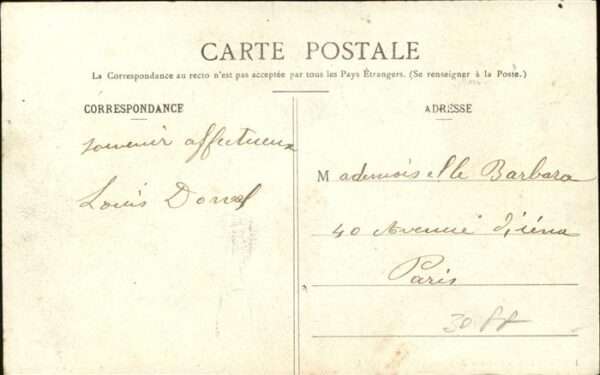 CARTE POSTALE
La Correspondance au recto n'est pas acceptée par tous les Pays Étrangers. (Se renseigner à la Poste.)
CORRESPONDANCE
souvenir affectueux
Louis
ADRESSE
Mademoiselle Barbara
40 Avenue d'iéna
Paris
30